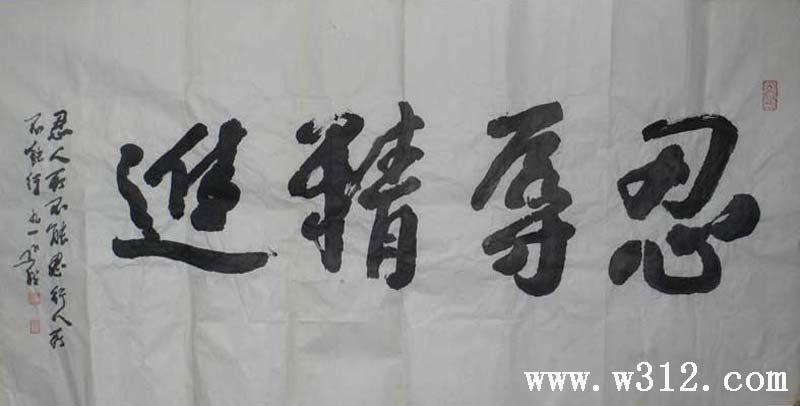 忍辱精進
忍人所不能忍行人所
不能行
www.w312.com